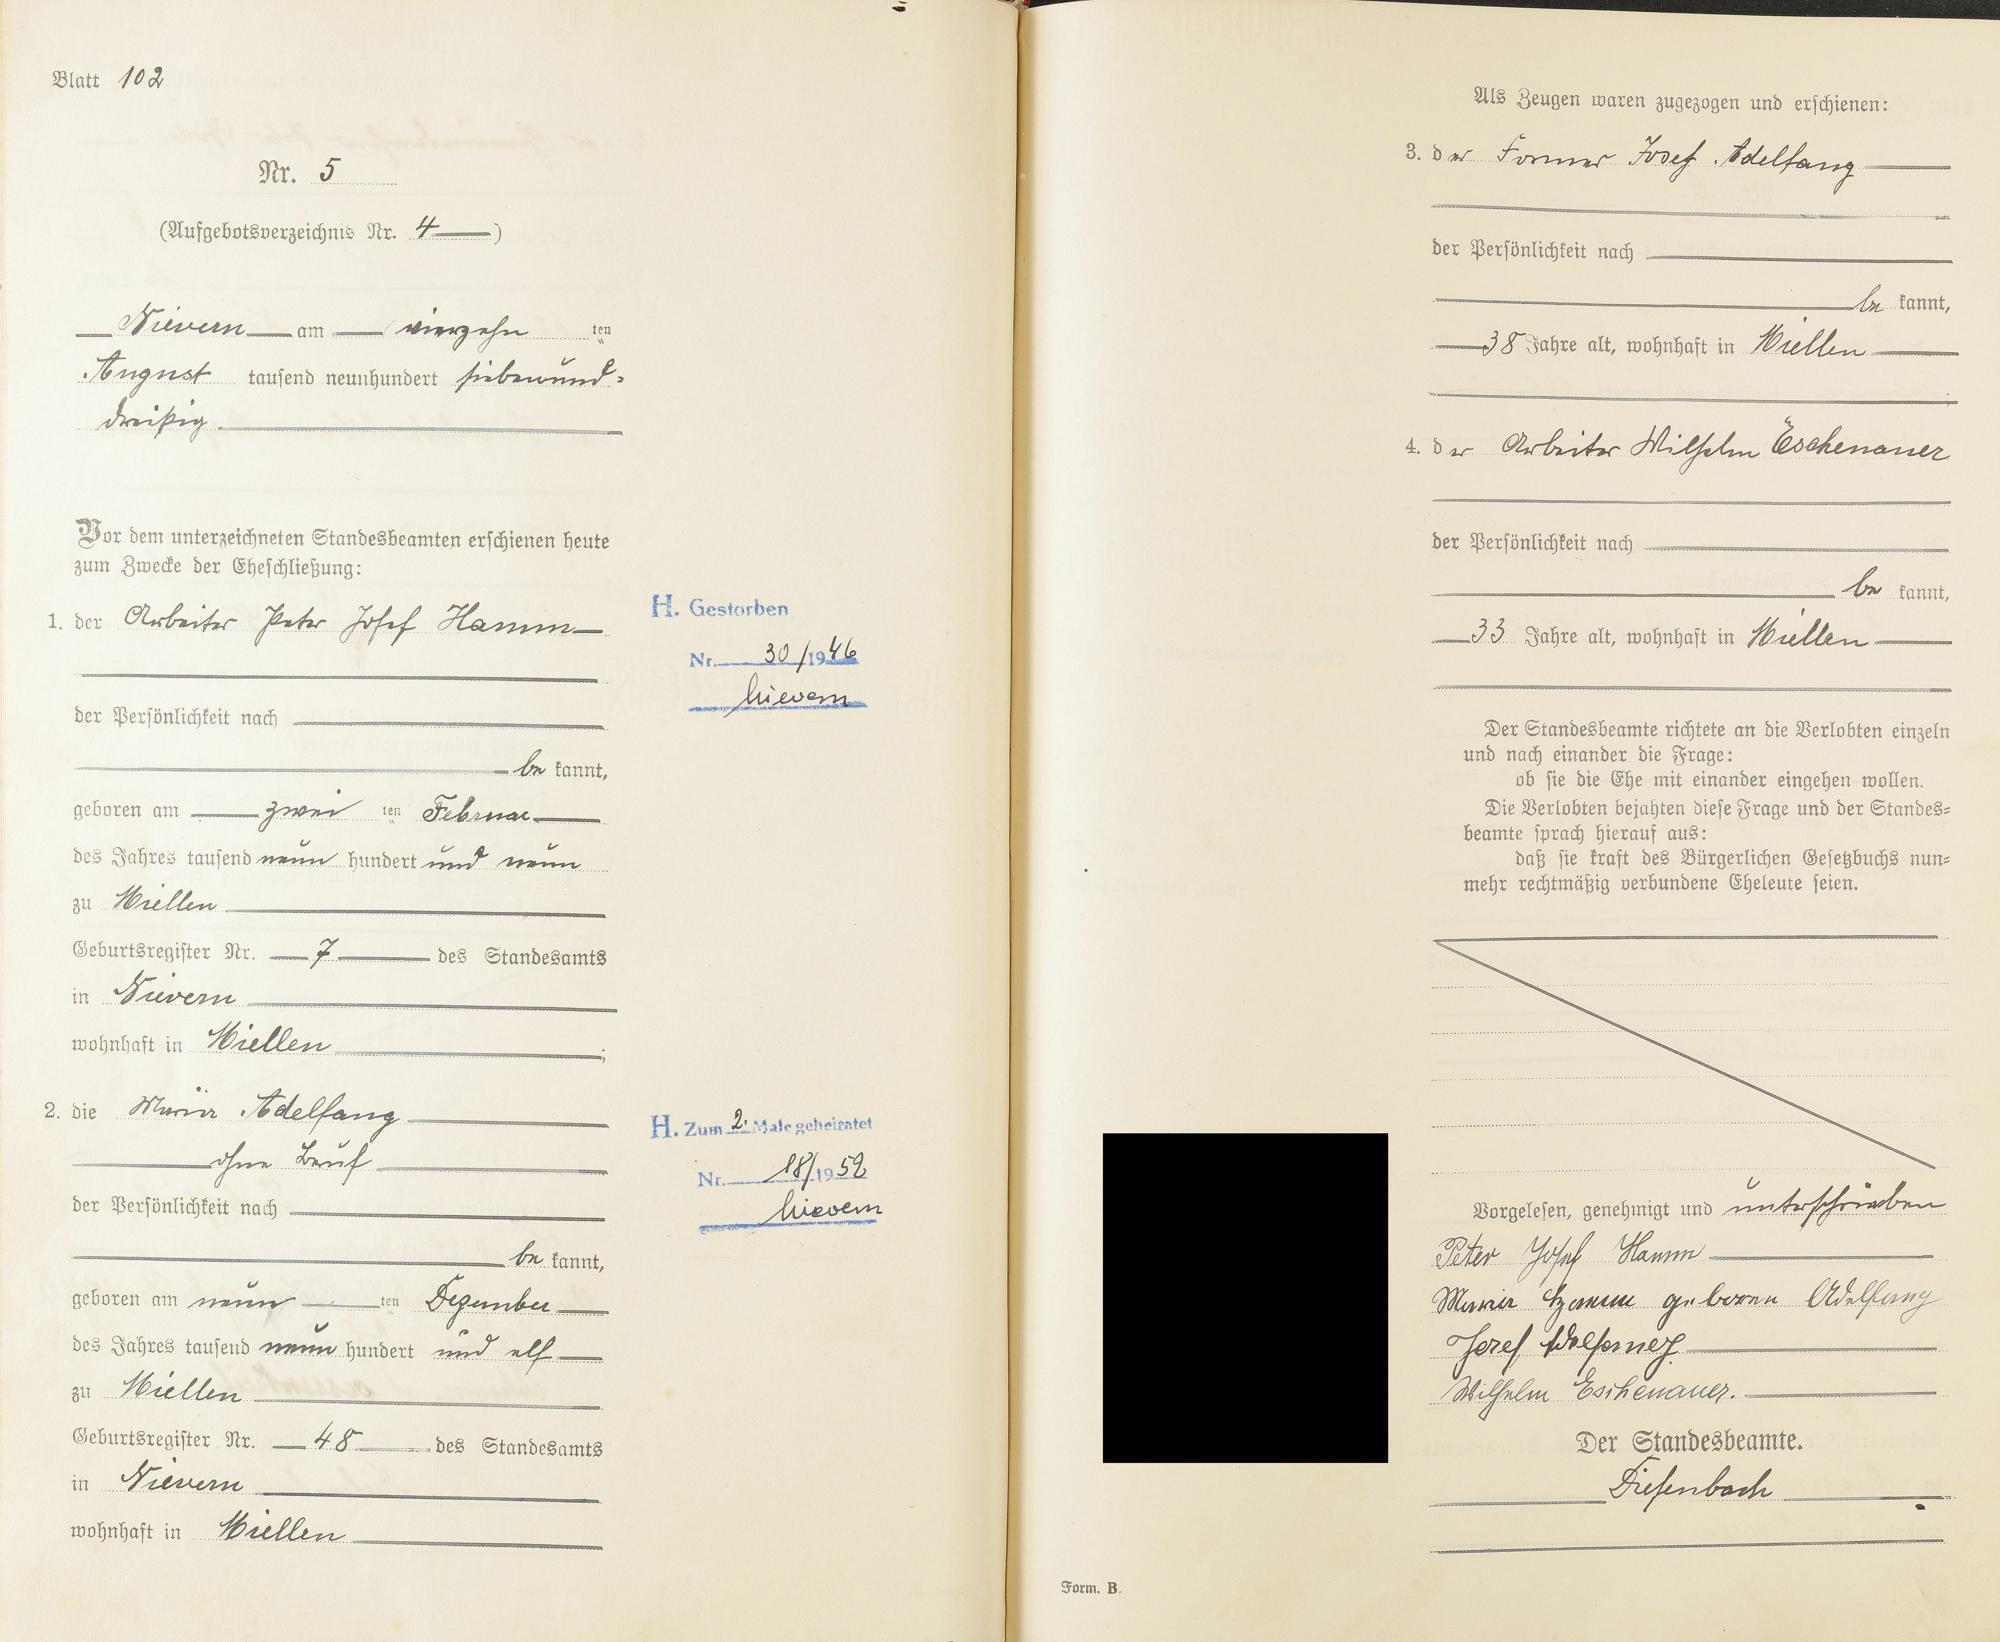 Blatt 102
Nr. 5
(Aufgebotsverzeichnis Nr. 4)
Nievern am vierzehn ten
August tausend neunhundert siebenund-
dreißig
Vor dem unterzeichneten Standesbeamten erschienen heute
zum Zwecke der Eheschließung:
1. der Arbeiter Peter Josef Hamm
der Persönlichkeit nach
be kannt,
geboren am zwei ten Februar
des Jahres tausend neun hundert und neun
zu Miellen
Geburtsregister Nr. 7 des Standesamts
in Nievern
wohnhaft in Miellen ;
2. die Maria Adelfang
ohne Beruf
der Persönlichkeit nach
be kannt,
geboren am neun ten Dezember
des Jahres tausend neun hundert und elf
zu Miellen
Geburtsregister Nr. 48 des Standesamts
in Nievern
wohnhaft in Miellen
H. Gestorben
Nr. 30/1946
Nievern
H. Zum 2. Male geheiratet
Nr. 18/1952
Nievern
Als Zeugen waren zugezogen und erschienen:
3. der Former Josef Adelfang
der Persönlichkeit nach
be kannt,
38 Jahre alt, wohnhaft in Miellen
4. der Arbeiter Wilhelm Eschenauer
der Persönlichkeit nach
be kannt,
33 Jahre alt, wohnhaft in Miellen
Der Standesbeamte richtete an die Verlobten einzeln
und nach einander die Frage:
ob sie die Ehe mit einander eingehen wollen.
Die Verlobten bejahten diese Frage und der Standes-
beamte sprach hierauf aus:
daß sie kraft des Bürgerlichen Gesetzbuchs nun-
mehr rechtmäßig verbundene Eheleute seien.
Vorgelesen, genehmigt und unterschrieben
Peter Josef Hamm
Maria Hamm geboren Adelfang
Josef Adelfang
Wilhelm Eschenauer.
Der Standesbeamte.
Diefenbach
Form. B.